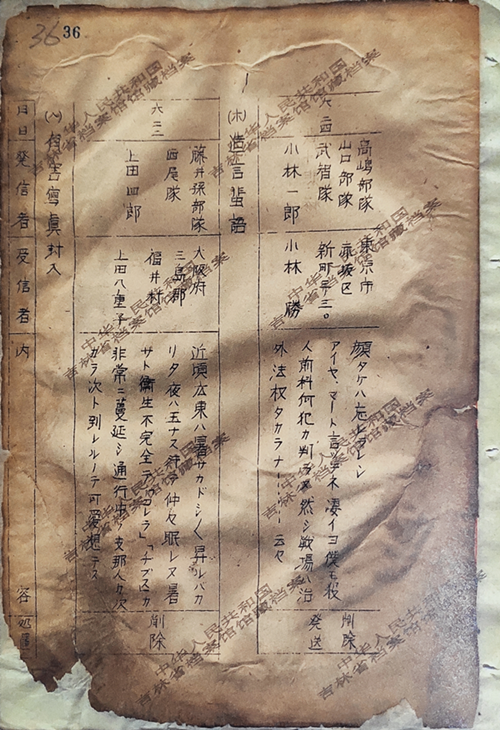 36 36
六二四
高嶋部隊
山口部隊
武智隊
小林一郎
東京市
赤坂区
新町
小林 勝
顔タケハ忘レラレン
アイヤ、マート言フネ凄イヨ僕モ殺
人前科何犯カ判ラヌ然シ戦場ハ治
外法権タカラナ……云々
削除
発送
(ホ) 造言蜚語
六二三
藤井操部隊
西尾隊
上田四郎
大阪府
三島郡
福井村
上田八重子
近頃広東ハ暑サカドシ〱昇ルバカ
リタ夜ハ 仲々眠レヌ暑
サト衛生不完全 「コレラ」「チブス」カ
非常ニ蔓延シ通行中 支那人カ次
カラ次ト倒レルノテ可愛想テス
削除
(ヘ) 写真封入
月日 発信者 受信者 内容 処置
中华人民共和国
吉林省档案馆馆藏档案